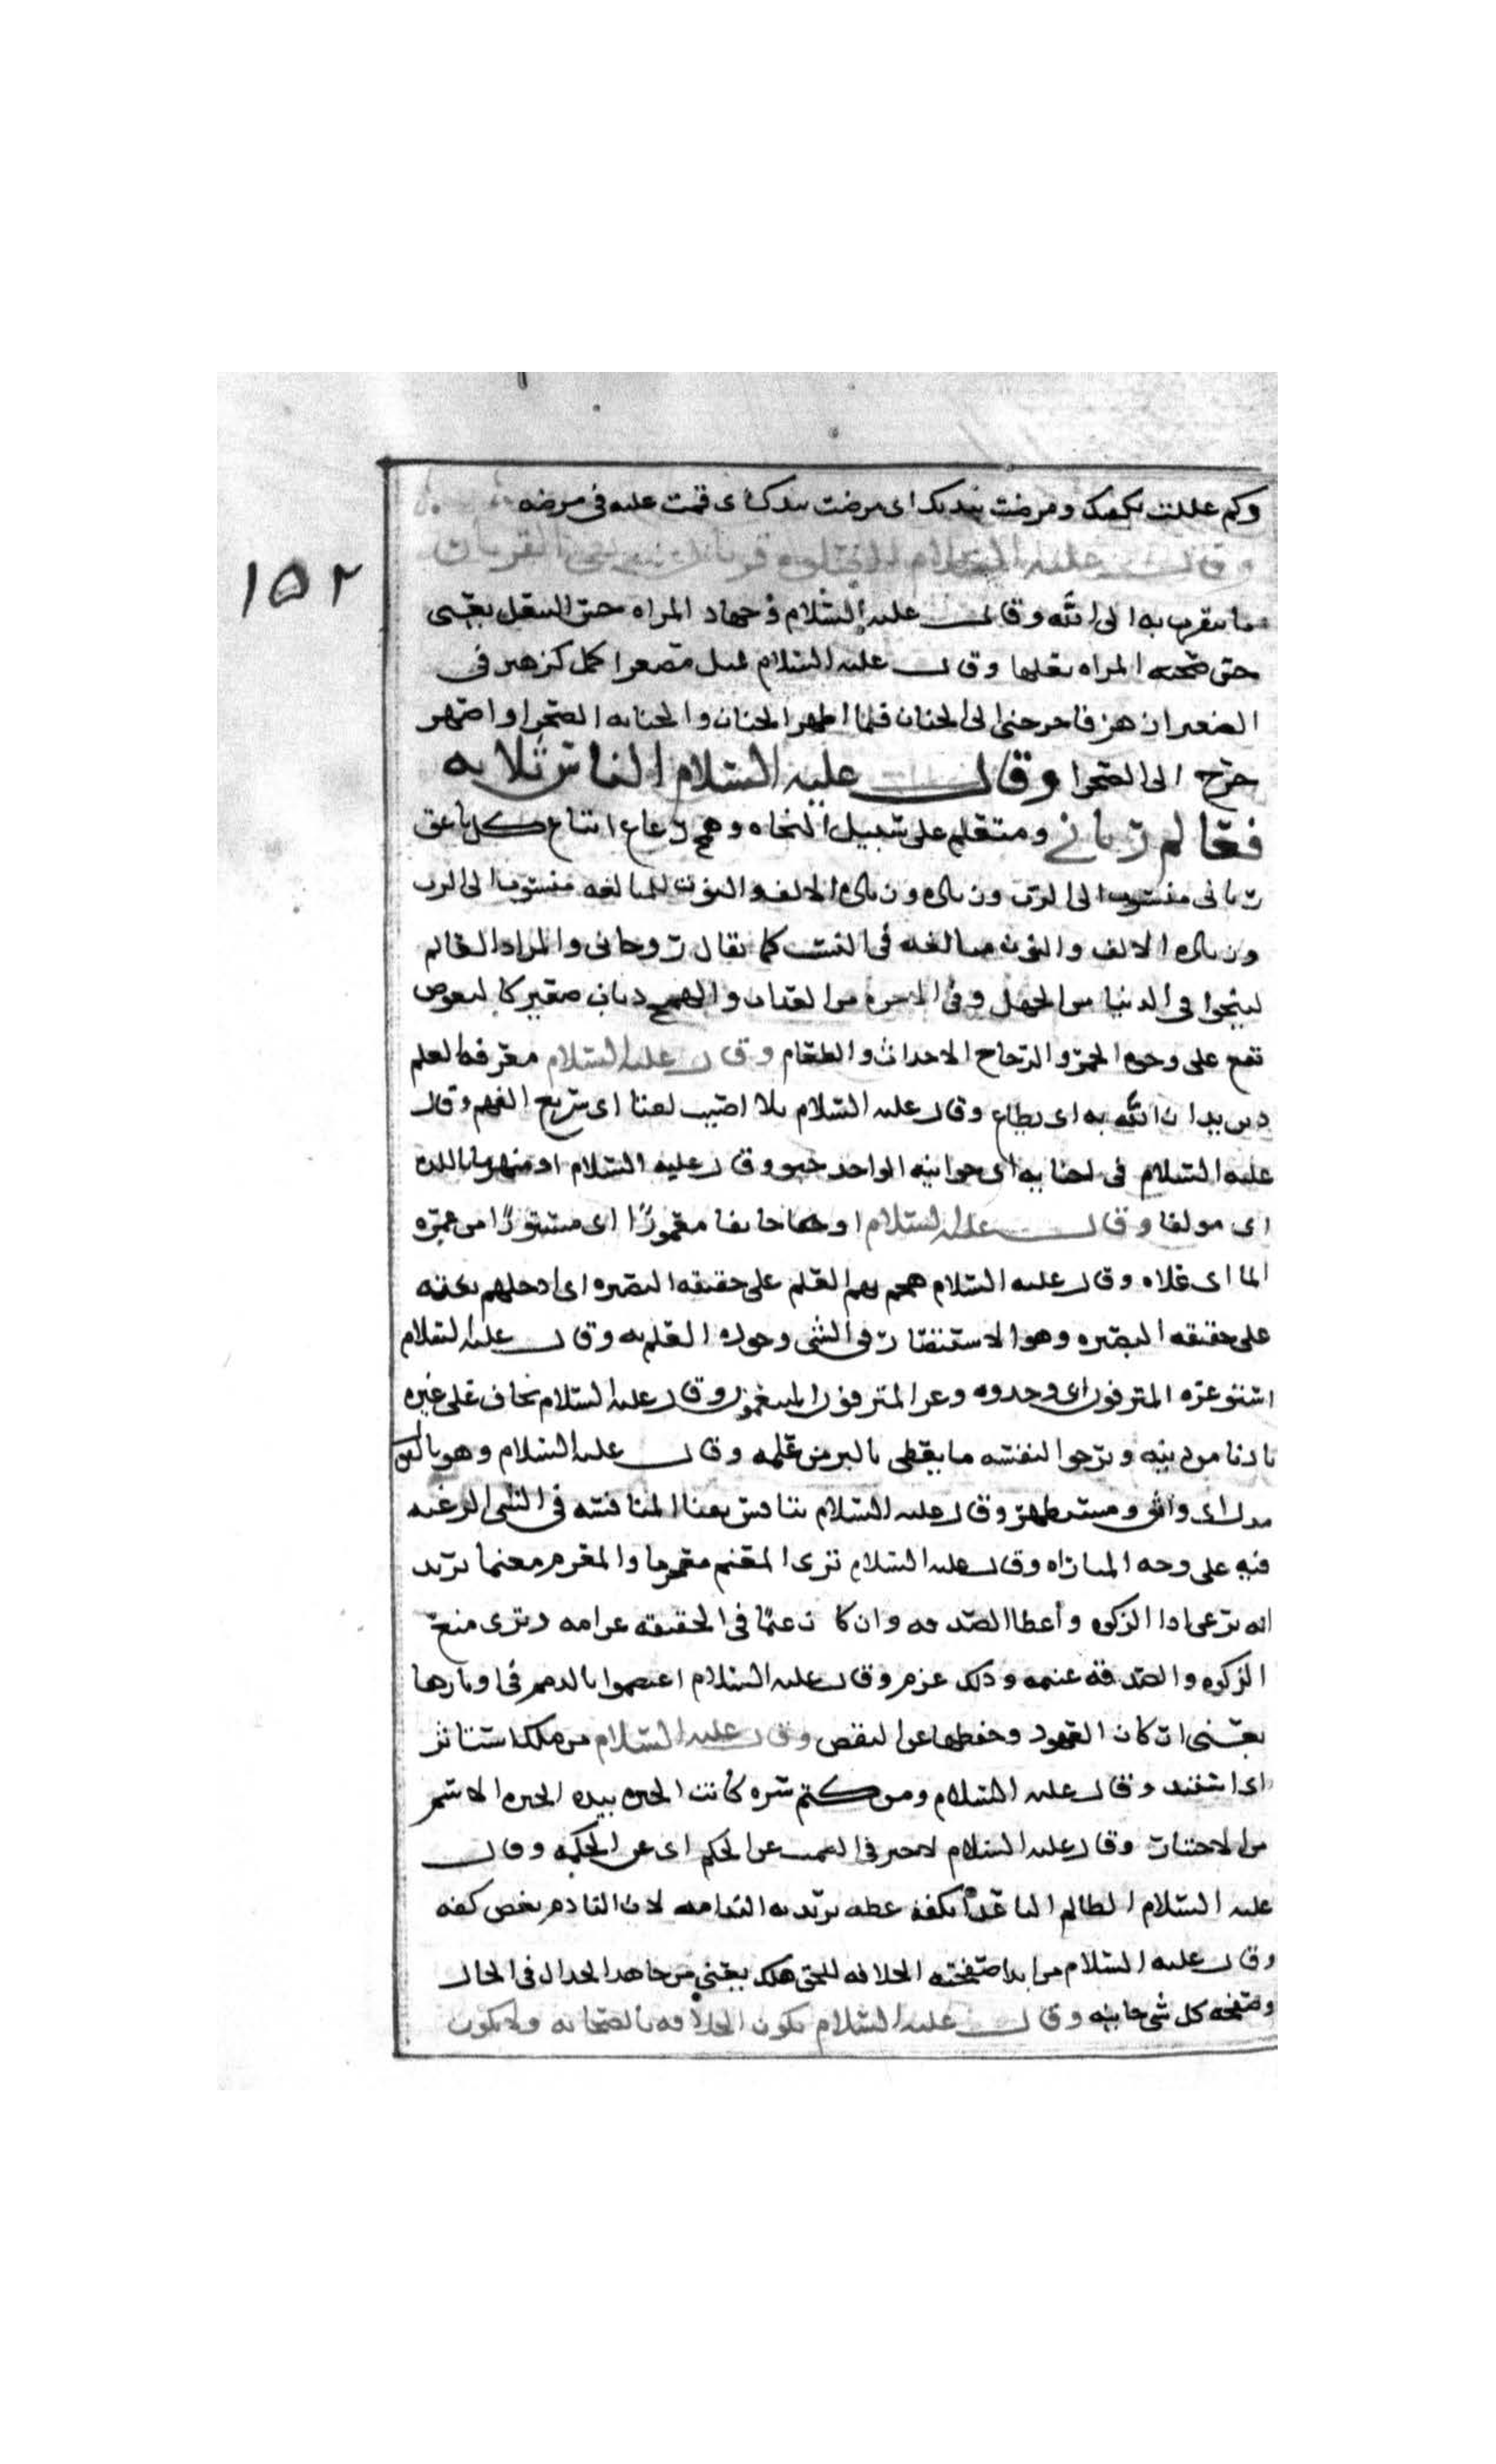 وكم عللت بكفيك ومرضت بيديك اى مرضت بيدك اى قمت عليه فى مرضه
وقال عليه السلام الصلوه قربان كل تقى القربان
ما يتقرب به الى الله وقال عليه السلام وجهاد المراه حسن التبعل يعنى
حسن صحبه المراه بعلها وقال عليه السلام
الى الجنان فلما اظهر الجنان والجنانه الصحرا واصحر
خرج الى الصحرا وقال عليه السلام الناس ثلاثه
فعالم ربانى ومتعلم على سبيل النجاه وهمج رعاع اتباع كل ناعق
ربانى منسوب الى الرب وزياده الالف والنون للمبالغه منسوب الى الرب
وزياده الالف والنون مبالغه فى النسب كما يقال روحانى والمراد العالم
لينجوا فى الدنيا من الجهل وفى الاخره من العذاب والهمج ذباب صغير كالبعوض
تقع على وجوه الحمر والرعاع الاحداث والطغام وقال عليه السلام معرفه العلم
دين يدان الله به اى يطاع وقال عليه السلام بلا اصيب لقنا اى سريع الفهم وقال
عليه السلام فى احنايه اى جوانبه الواحد حنو وقال عليه السلام او منهوما باللذه
اى مولعا وقال عليه السلام او خايفا مغمورًا اى مستورًا من غمره
الما اى علاه وقال عليه السلام هجم بهم العلم على حقيقه البصيره اى ادخلهم بغته
على حقيقه البصيره وهو الاستبصار فى الشى وجوده العلم به وقال عليه السلام
استوعره المترفون اى وجدوه وعرا المترفون المنعمون وقال عليه السلام يخاف على غيره
بادنا من ذنبه ويرجوا لنفسه ما يعطى باكثر من عمله وقال عليه السلام وهو بالقول
مدل اى واثق ومستظهر وقال عليه السلام ينافس يعنا المنافسه فى الشى الرغبه
فيه على وجه المباراه وقال عليه السلام يرى المغنم مغرما والمغرم مغنما يريد
انه يرى ادا الزكوه وأعطا الصدقه وان كان غنما فى الحقيقه غرامه ويرى منع
الزكوه والصدقه غنيمه وذلك غرم وقال عليه السلام اعتصموا بالذمم فى اوتادها
يعنى اركان العهود وحفظها عن النقص وقال عليه السلام من ملك استاثر
اى استبد وقال عليه السلام ومن كتم سره كانت الخيره بيده الخيره الاسم
من الاختيار وقال عليه السلام لا خير فى الصمت عن الحكم اى عن الحكمه وقال
عليه السلام للظالم البادى غدًا بكفه عضه يريد به الندامه لان النادم يعض كفه
وقال عليه السلام من ابدا صفحته للحق هلك يعنى من جاهد
وصفحه كل شى جانبه وقال عليه السلام تكون الخلافه بالصحابه ولا تكون
١٥٢